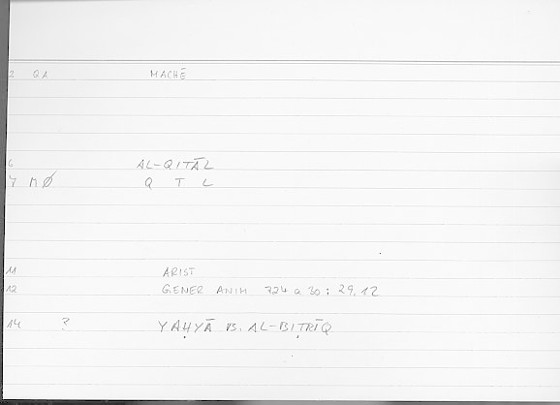 2 QA MACHĒ
6 AL-QITĀL
7 M Ø Q T L
11 ARIST
12 GENER ANIM 724 a 30 : 29.12
14 ? YAḤYĀ B. AL-BIṬRĪQ